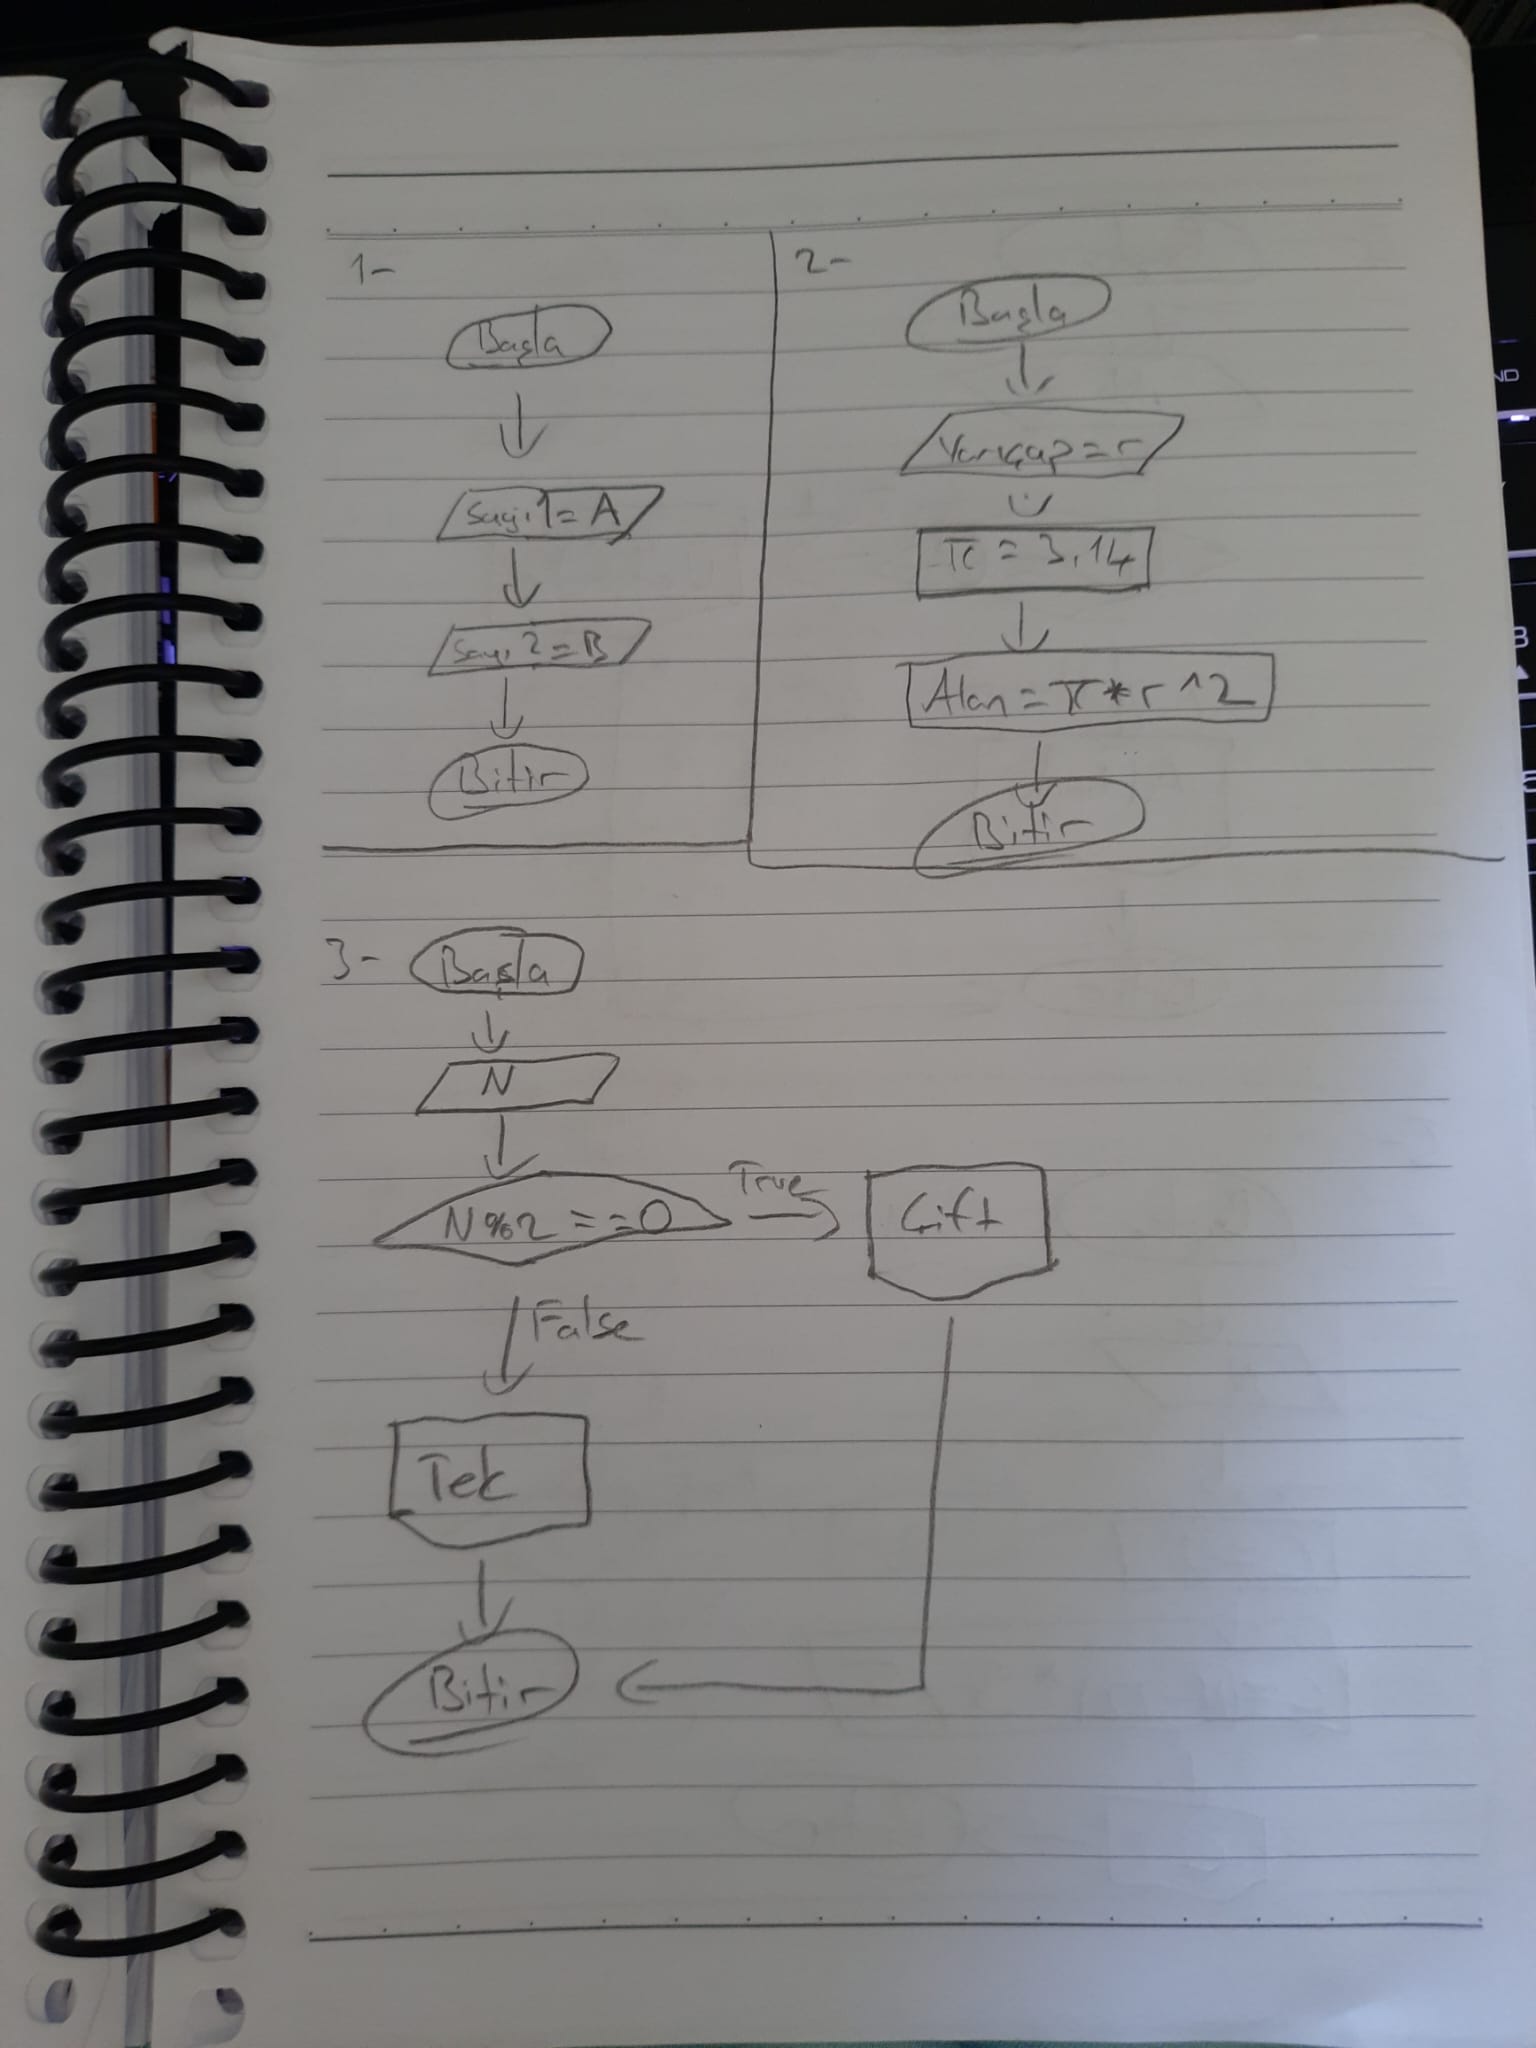 1-
Başla
Sayı1 = A
Sayı2 = B
Bitir
2-
Başla
Yarıçap = r
π = 3,14
Alan = π * r ^ 2
Bitir
3-
Başla
N
N%2 == 0
True
Çift
False
Tek
Bitir